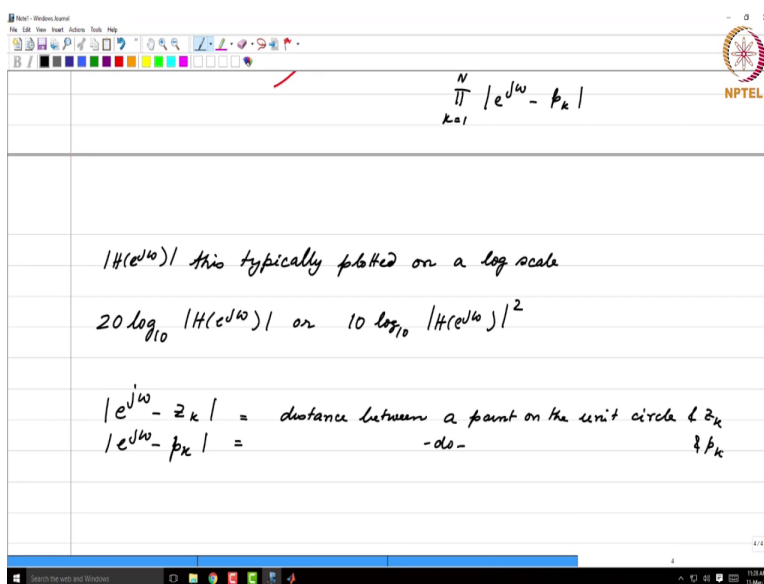 Note1 - Windows Journal
File Edit View Insert Actions Tools Help
NPTEL
N
∏ |e^{jω} - p_k|
k=1
|H(e^{jω})| this typically plotted on a log scale
20 log_{10} |H(e^{jω})| or 10 log_{10} |H(e^{jω})|^2
|e^{jω} - z_k| = distance between a point on the unit circle & z_k
|e^{jω} - p_k| = -do- & p_k
4/4
4
Search the web and Windows